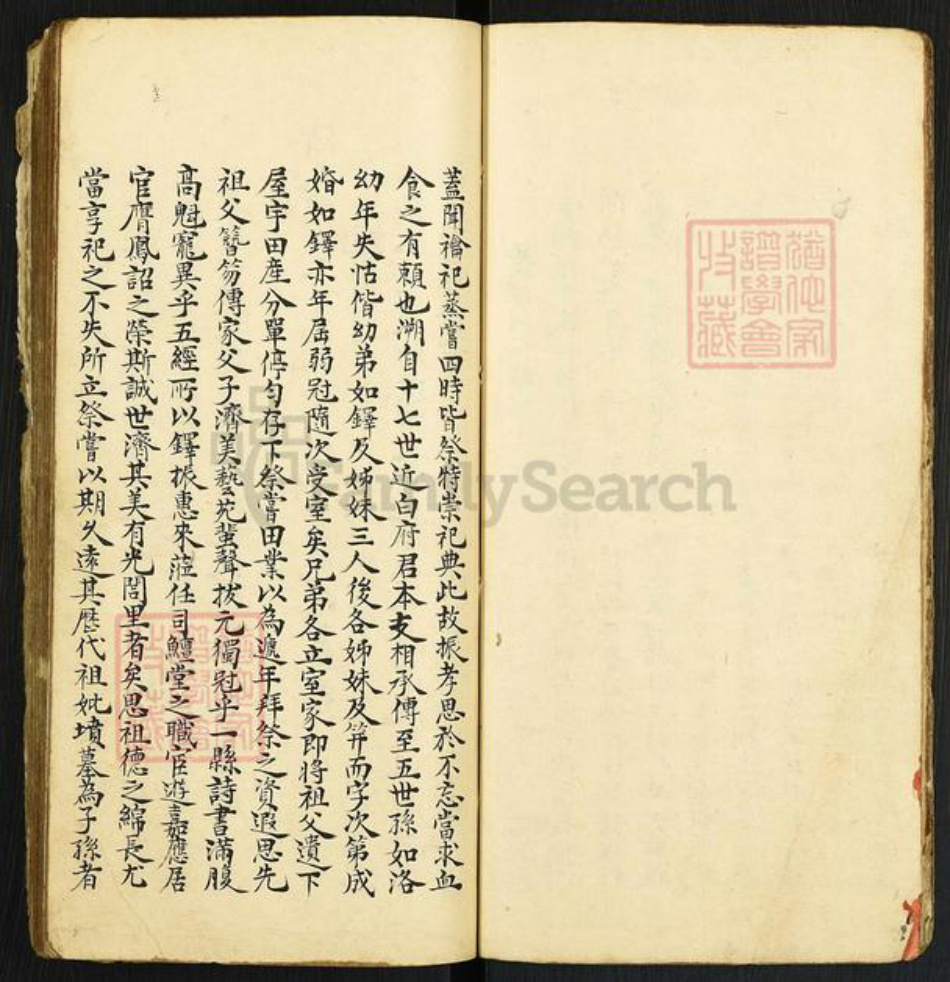 蓋聞禴祀蒸嘗四時皆祭特崇祀典此故振孝思於不忘當求血
食之有賴也溯自十七世近白府君本支相承傳至五世孫如洛
幼年失怙偕幼弟如鐸及姊妹三人後各姊妹及笄而字次第成
婚如鐸亦年屆弱冠隨次受室矣兄弟各立室家即將祖父遺下
屋宇田產分單停匀存下祭嘗田業以為遞年拜祭之資遐思先
祖父簪笏傳家父子濟美藝苑蜚聲拔元獨冠乎一縣詩書滿腹
高魁寵異乎五經所以鐸振惠來蒞任司鱣堂之職宦遊嘉應居
官膺鳳詔之榮斯誠世濟其美有光閭里者矣思祖德之綿長尤
當享祀之不失所立祭嘗以期久遠其歷代祖妣墳墓為子孫者
猶他家
譜學會
收藏
FamilySearch